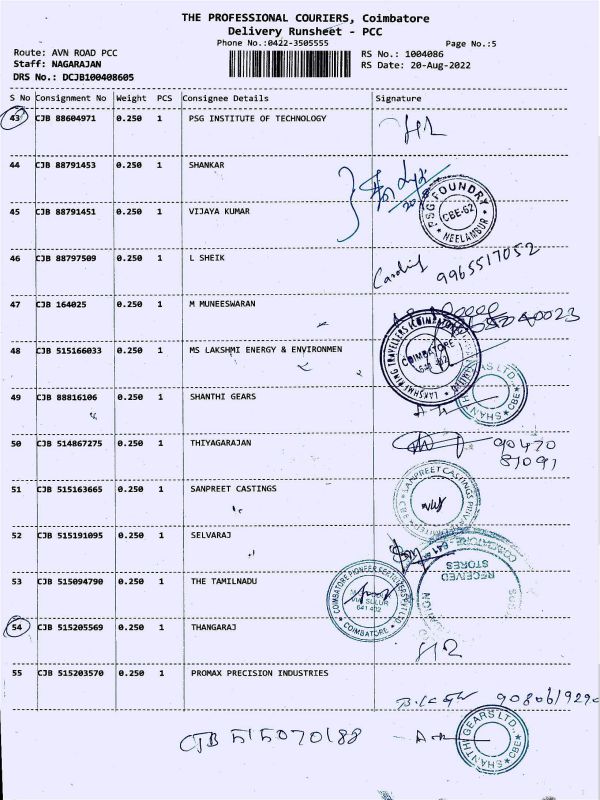 THE PROFESSIONAL COURIERS, Coimbatore
Delivery Runsheet - PCC
Phone No.:0422-3505555
Page No.:5
Route: AVN ROAD PCC
RS No.: 1004086
Staff: NAGARAJAN
RS Date: 20-Aug-2022
DRS No.: DCJB100408605
S No Consignment No Weight PCS Consignee Details Signature
43 CJB 88604971 0.250 1 PSG INSTITUTE OF TECHNOLOGY
44 CJB 88791453 0.250 1 SHANKAR
PSG FOUNDRY
CBE-62
NEELAMBUR
45 CJB 88791451 0.250 1 VIJAYA KUMAR
46 CJB 88797509 0.250 1 L SHEIK
9965517052
47 CJB 164025 0.250 1 M MUNEESWARAN
48 CJB 515166033 0.250 1 MS LAKSHMI ENERGY & ENVIRONMEN
COIMBATORE
49 CJB 88816106 0.250 1 SHANTHI GEARS
50 CJB 514867275 0.250 1 THIYAGARAJAN
90470
81091
51 CJB 515163665 0.250 1 SANPREET CASTINGS
52 CJB 515191095 0.250 1 SELVARAJ
RECEIVED
STORES
53 CJB 515094790 0.250 1 THE TAMILNADU
COIMBATORE PIONEER FERTILIZERS
SULUR
641 402
COIMBATORE
54 CJB 515205569 0.250 1 THANGARAJ
55 CJB 515203570 0.250 1 PROMAX PRECISION INDUSTRIES
CJB 515070188
SHANTHI GEARS LTD.,
CBE